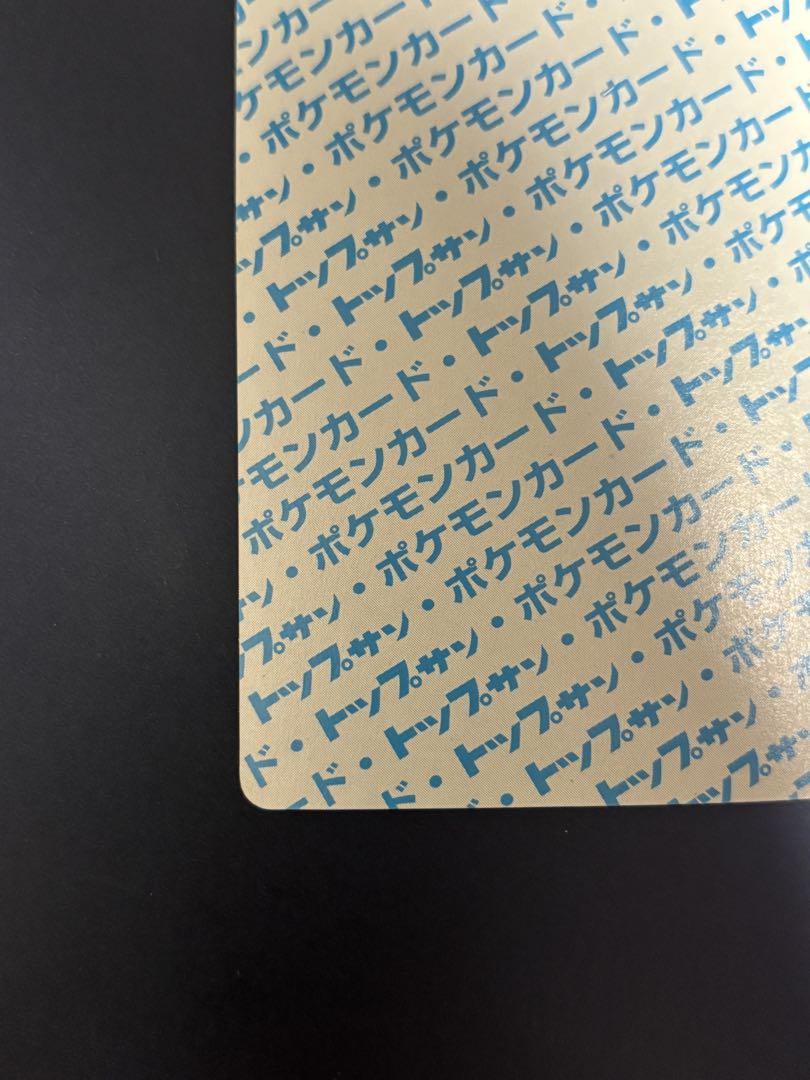 ンカ
ケモンカー
・ポケモンカード
サン・ポケモンカード・
ップサン・ポケモンカード・ト
・トップサン・ポケモンカード・ト
ード・トップサン・ポケモンカード・
ンカード・トップサン・ポケモンカー
モンカード・トップサン・ポケモンカ
ポケモンカード・トップサン・ポケモ
ン・ポケモンカード・トップサン・ポ
プサン・ポケモンカード・トップサ
トップサン・ポケモンカード・トッ
ド・トップサン・ポケモンカード・
ード・トップサン・ポケモンカー
ド・トップサン・ポケモン
・トップサン・ポケモ
トップサン・ポ
トップサ